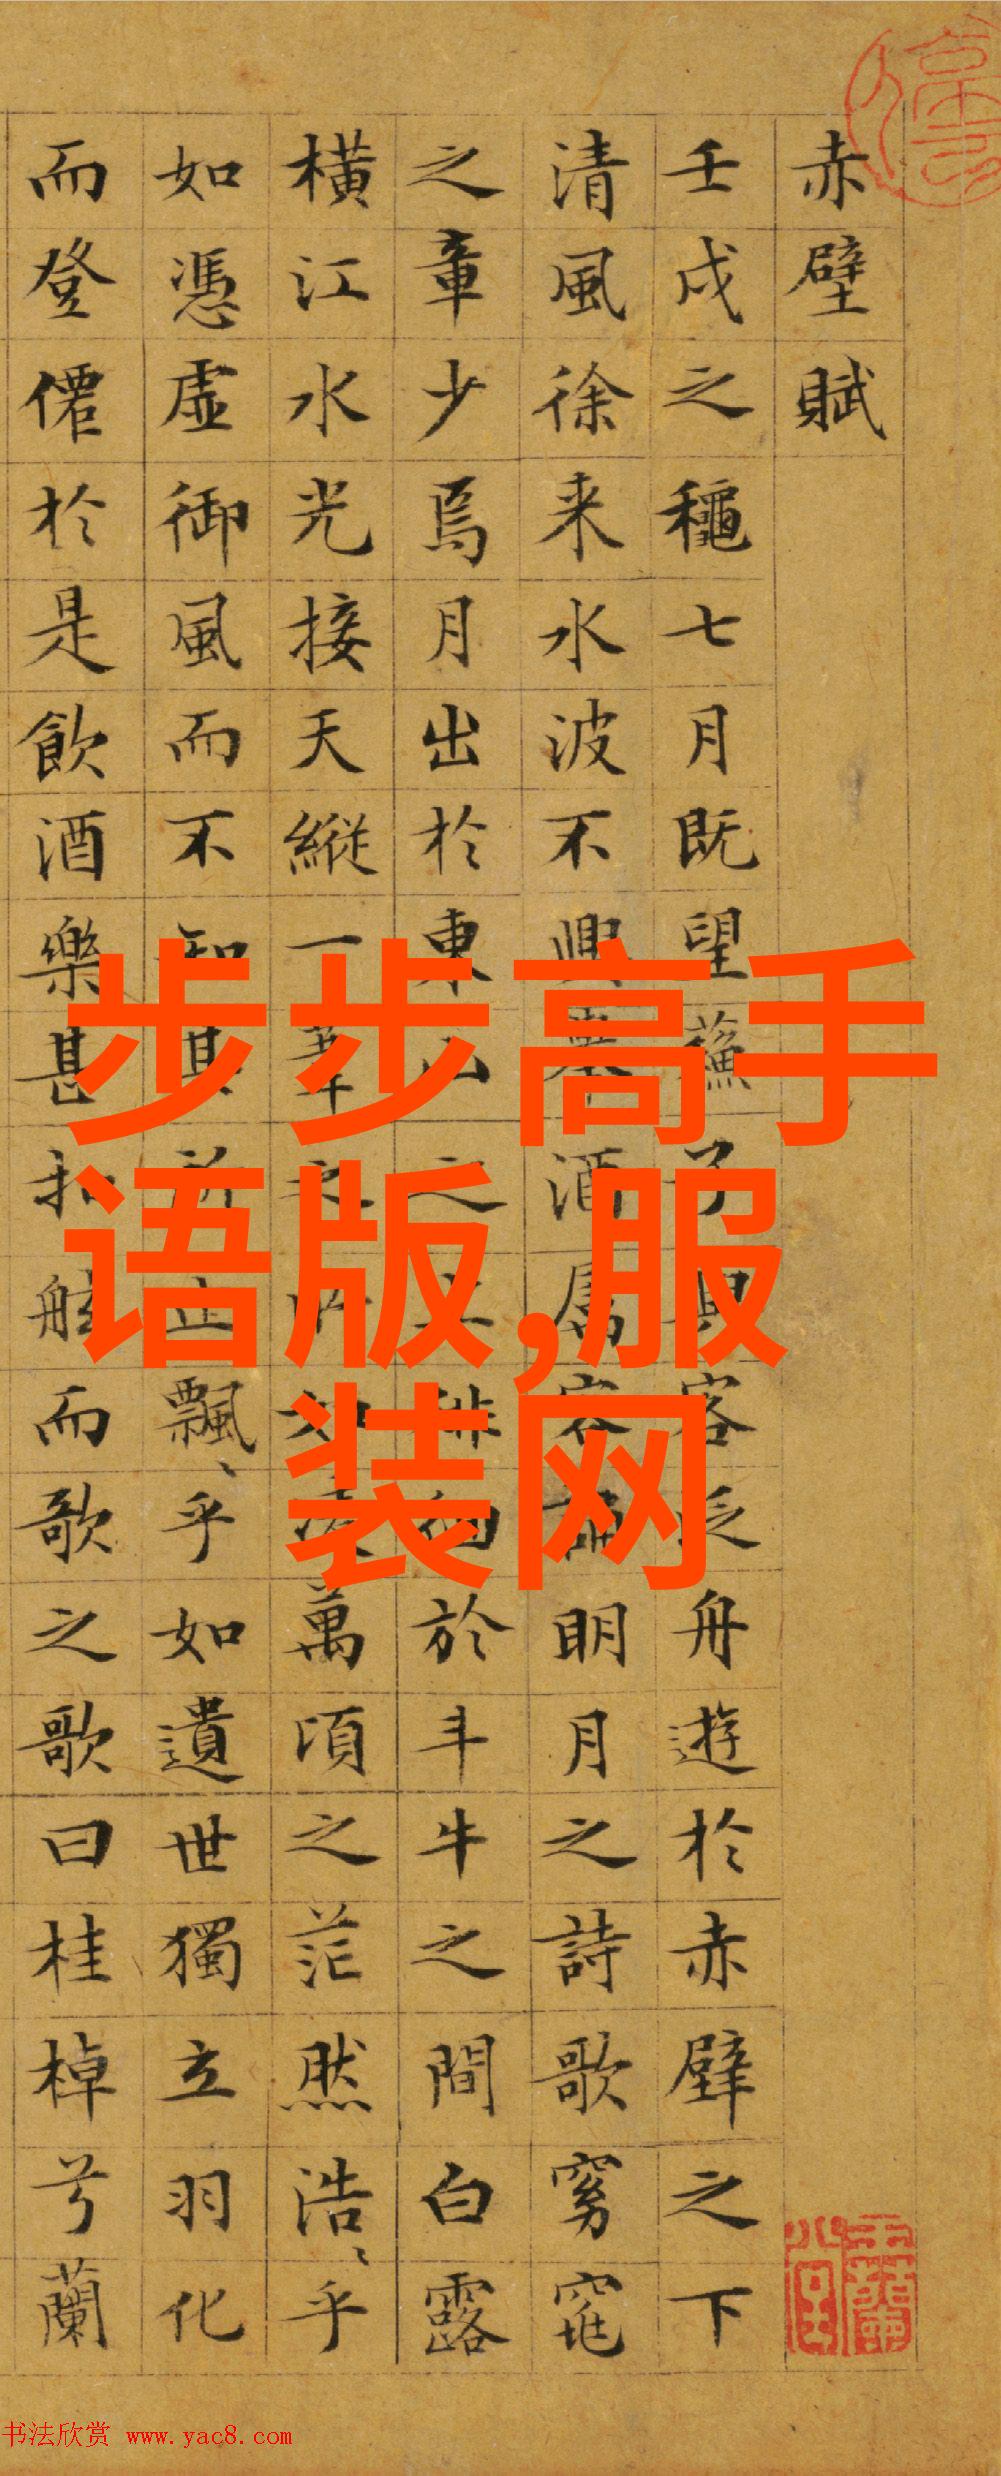 赤壁賦
壬戌之穐七月既望蘓子與客泛舟遊於赤壁之下
清風徐来水波不興舉酒属客誦明月之詩歌窈窕
之章少焉月出於東山之上徘徊於斗牛之間白露
橫江水光接天縱一葦之所如凌萬頃之茫然浩〻乎
如憑虛御風而不知其所止飄〻乎如遺世獨立羽化
而登僊於是飲酒樂甚扣舷而歌之歌曰桂棹兮蘭
步步高手
语版,服
装网
书法欣赏 www.yac8.com